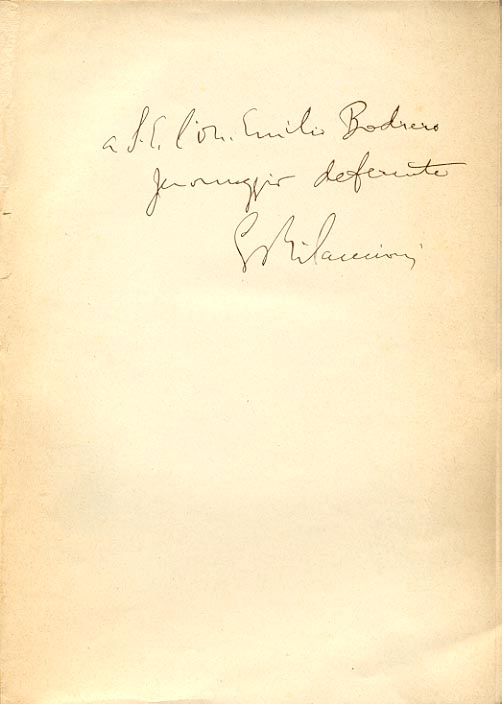 a S. E. l'on. Emilio Bodrero
in omaggio deferente
G Bilancioni